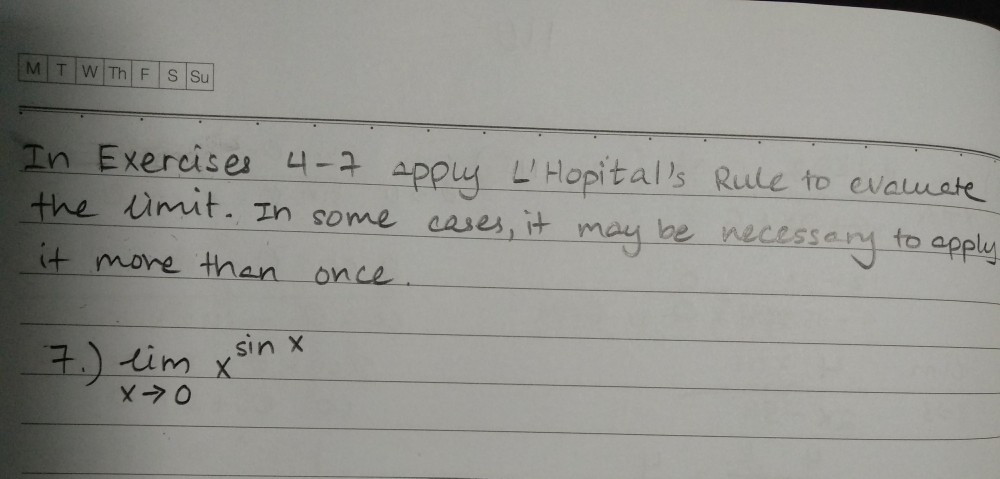 M T W Th F S Su
In Exercises 4-7 apply L'Hopital's Rule to evaluate
the limit. In some cases, it may be necessary to apply
it more than once.
7.) lim x^sin x
x→0